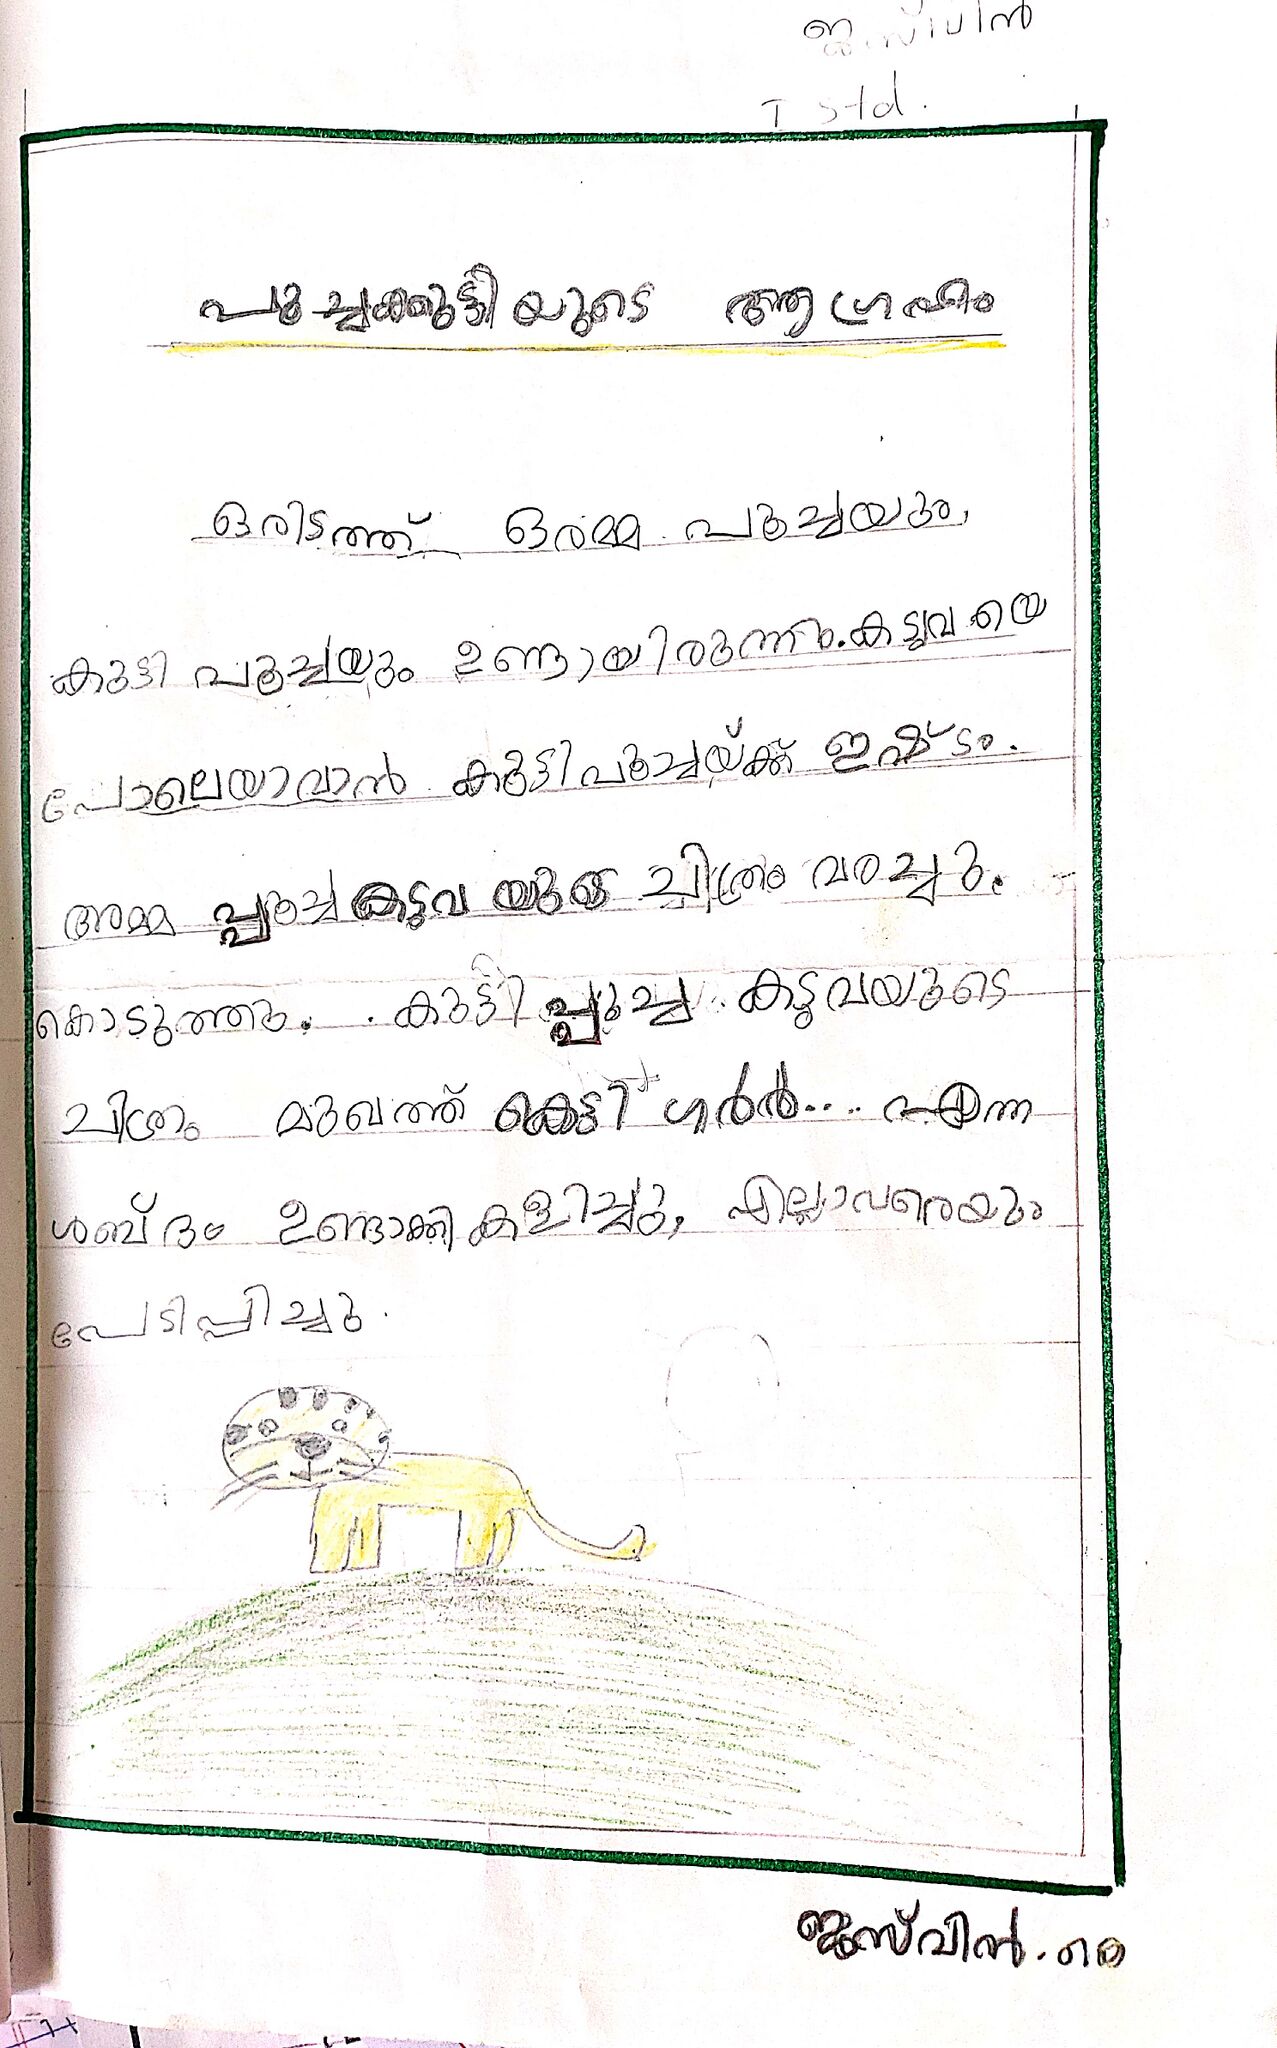 ജസ്വിൻ
I Std.
പൂച്ചക്കുട്ടിയുടെ ആഗ്രഹം
ഒരിടത്ത് ഒരമ്മ പൂച്ചയും,
കുട്ടി പൂച്ചയും ഉണ്ടായിരുന്നു. കടുവയെ
പോലെയാവാൻ കുട്ടിപൂച്ചയ്ക്ക് ഇഷ്ടം.
അമ്മ പ്പൂച്ച കടുവയുടെ ചിത്രം വരച്ചു.
കൊടുത്തു. കുട്ടി പ്പൂച്ച കടുവയുടെ
ചിത്രം മുഖത്ത് കെട്ടി ഗർർ.... എന്ന
ശബ്ദം ഉണ്ടാക്കി കളിച്ചു, എല്ലാവരെയും
പേടിപ്പിച്ചു.
ജസ്വിൻ.